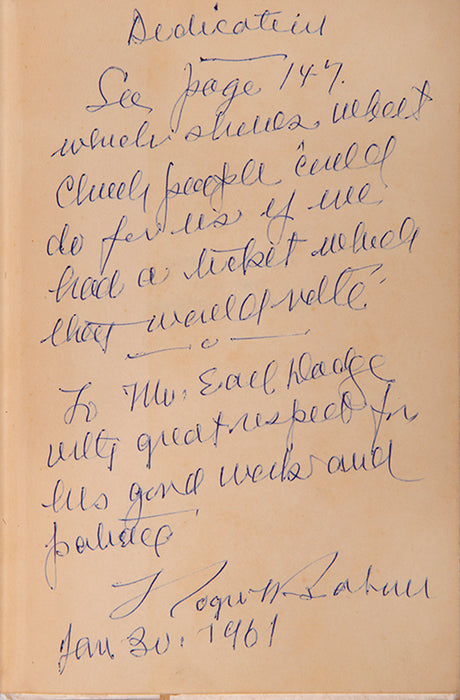 Dedication
See page 147.
which shows what
Church people "could
do for us if we
had a ticket which
they would vote"
To Mr. Earl Dodge
with great respect for
his good work and
patience
Roger W. Babson
Jan. 30. 1961